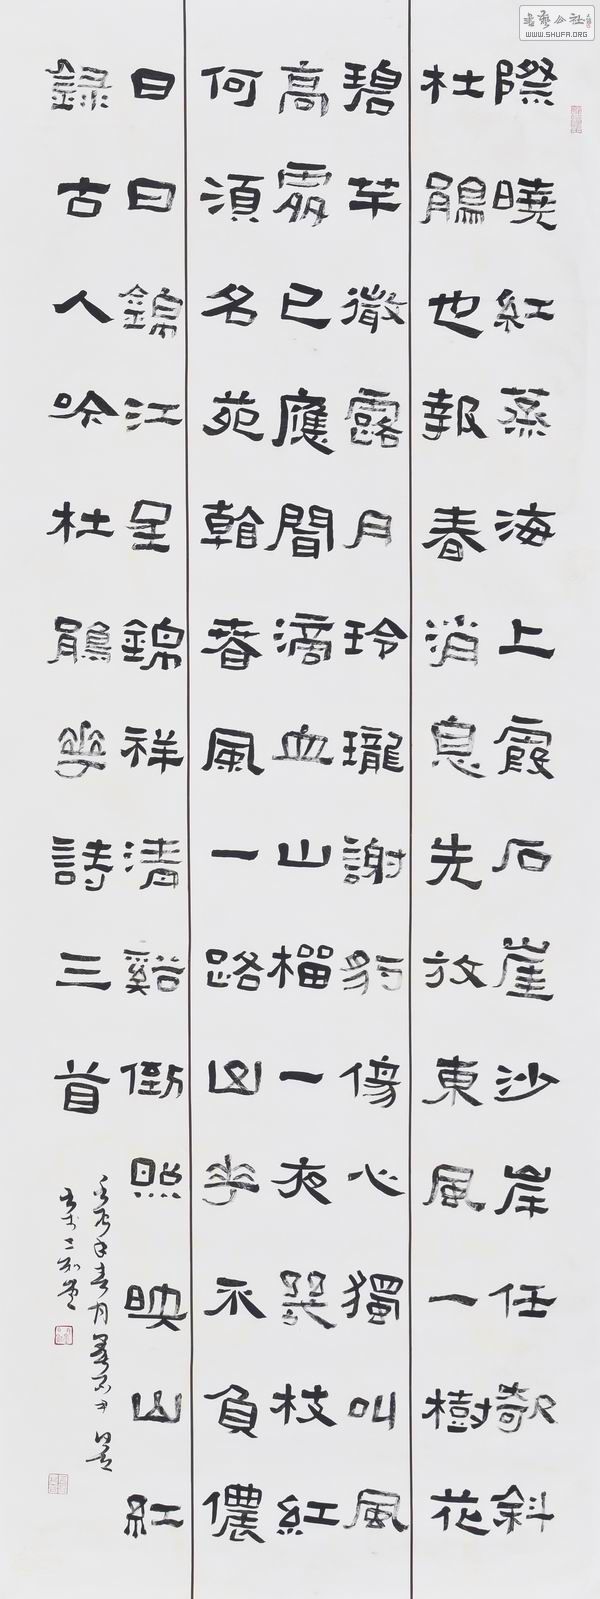 際曉紅蒸海上霞石崖沙岸任欹斜
杜鵑也報春消息先放東風一樹花
碧芊微露月玲瓏謝豹傷心獨叫風
高處已應聞滴血山榴一夜幾枝紅
何須名苑看春風一路山花不負儂
日日錦江呈錦祥清谿倒照映山紅
録古人吟杜鵑華詩三首
書藝公社
WWW.SHUFA.ORG